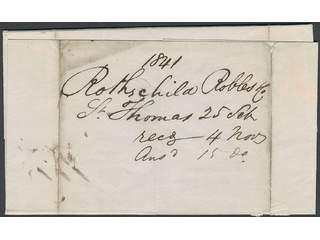 1841
Rothschild Robles & Co
St Thomas 25 Feb
recd 4 Nov
Ansd 15 do